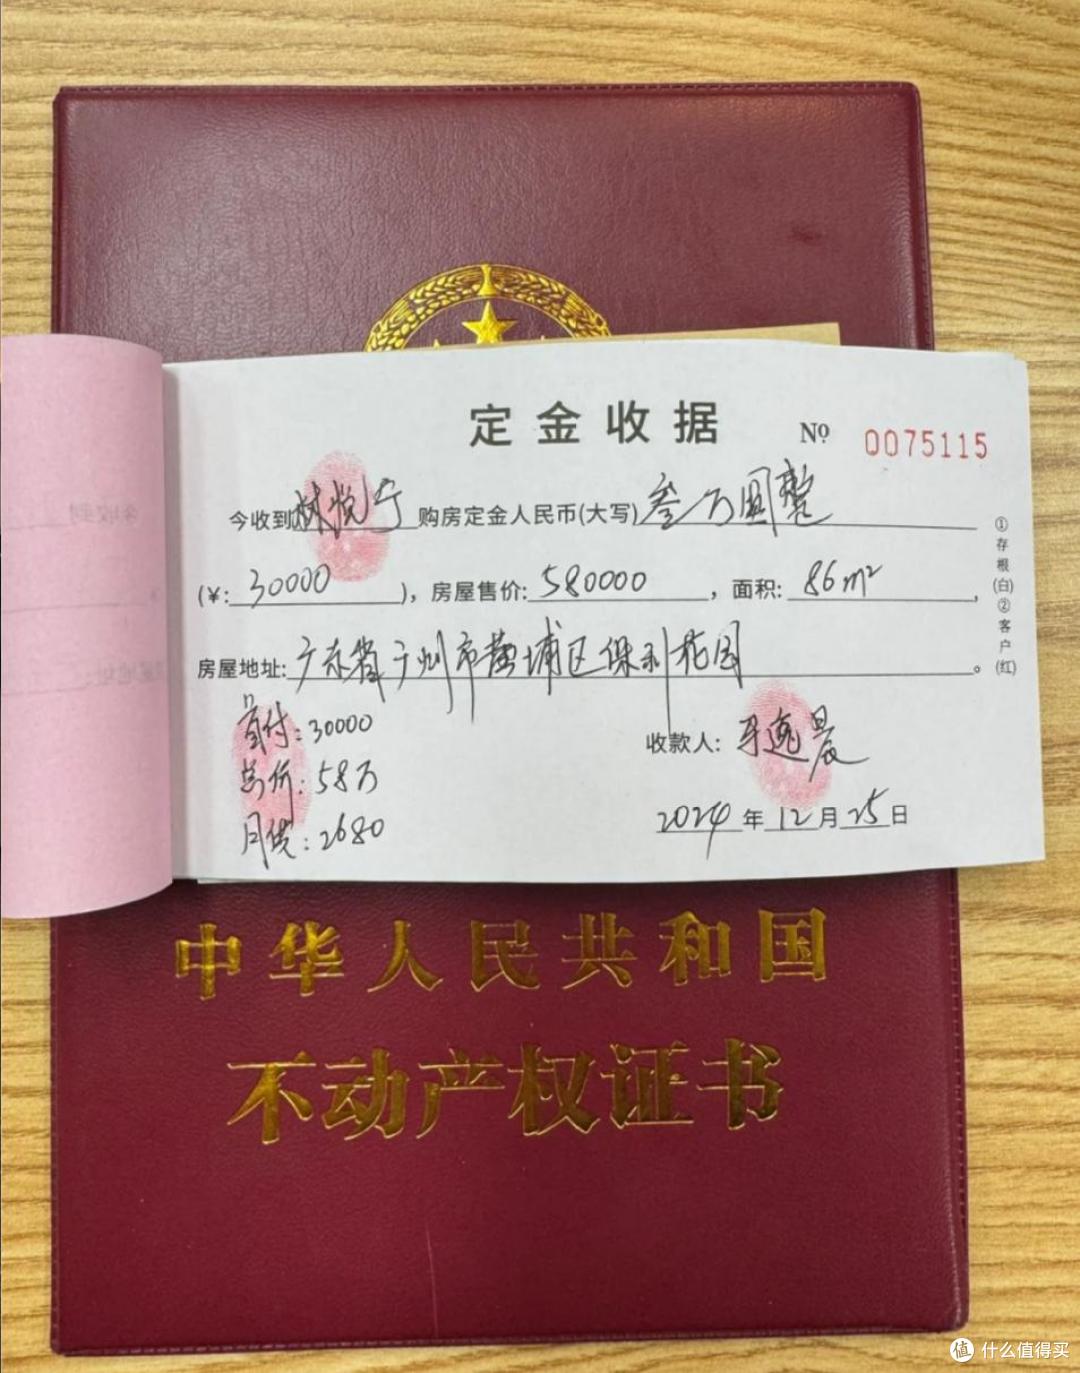 定金收据 № 0075115
今收到林悦宁购房定金人民币(大写)叁万圆整
(¥:30000),房屋售价:580000,面积:86m²,
房屋地址:广东省广州市黄埔区保利花园。
首付:30000
总价:58万
月供:2680
收款人:逸晨
2024年12月25日
①存根(白)②客户(红)
中华人民共和国
不动产权证书
值 什么值得买